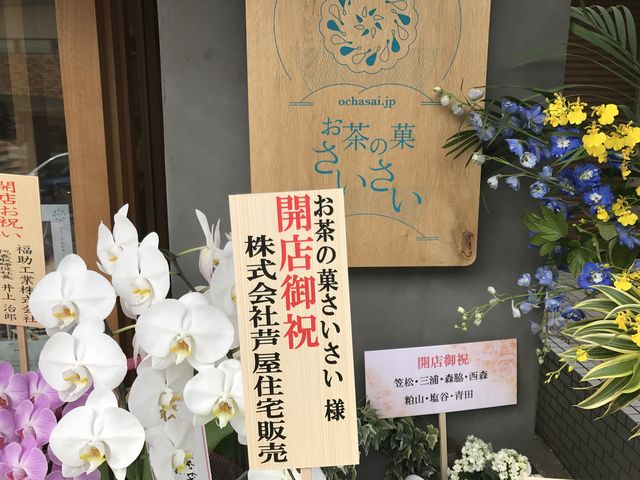 ochasai.jp
お茶の菓
さいさい
お茶の菓さいさい 様
開店御祝
株式会社芦屋住宅販売
開店お祝い
福助工業株式会社
井上 治郎
開店御祝
笠松・三浦・森脇・西森
粕山・塩谷・青田